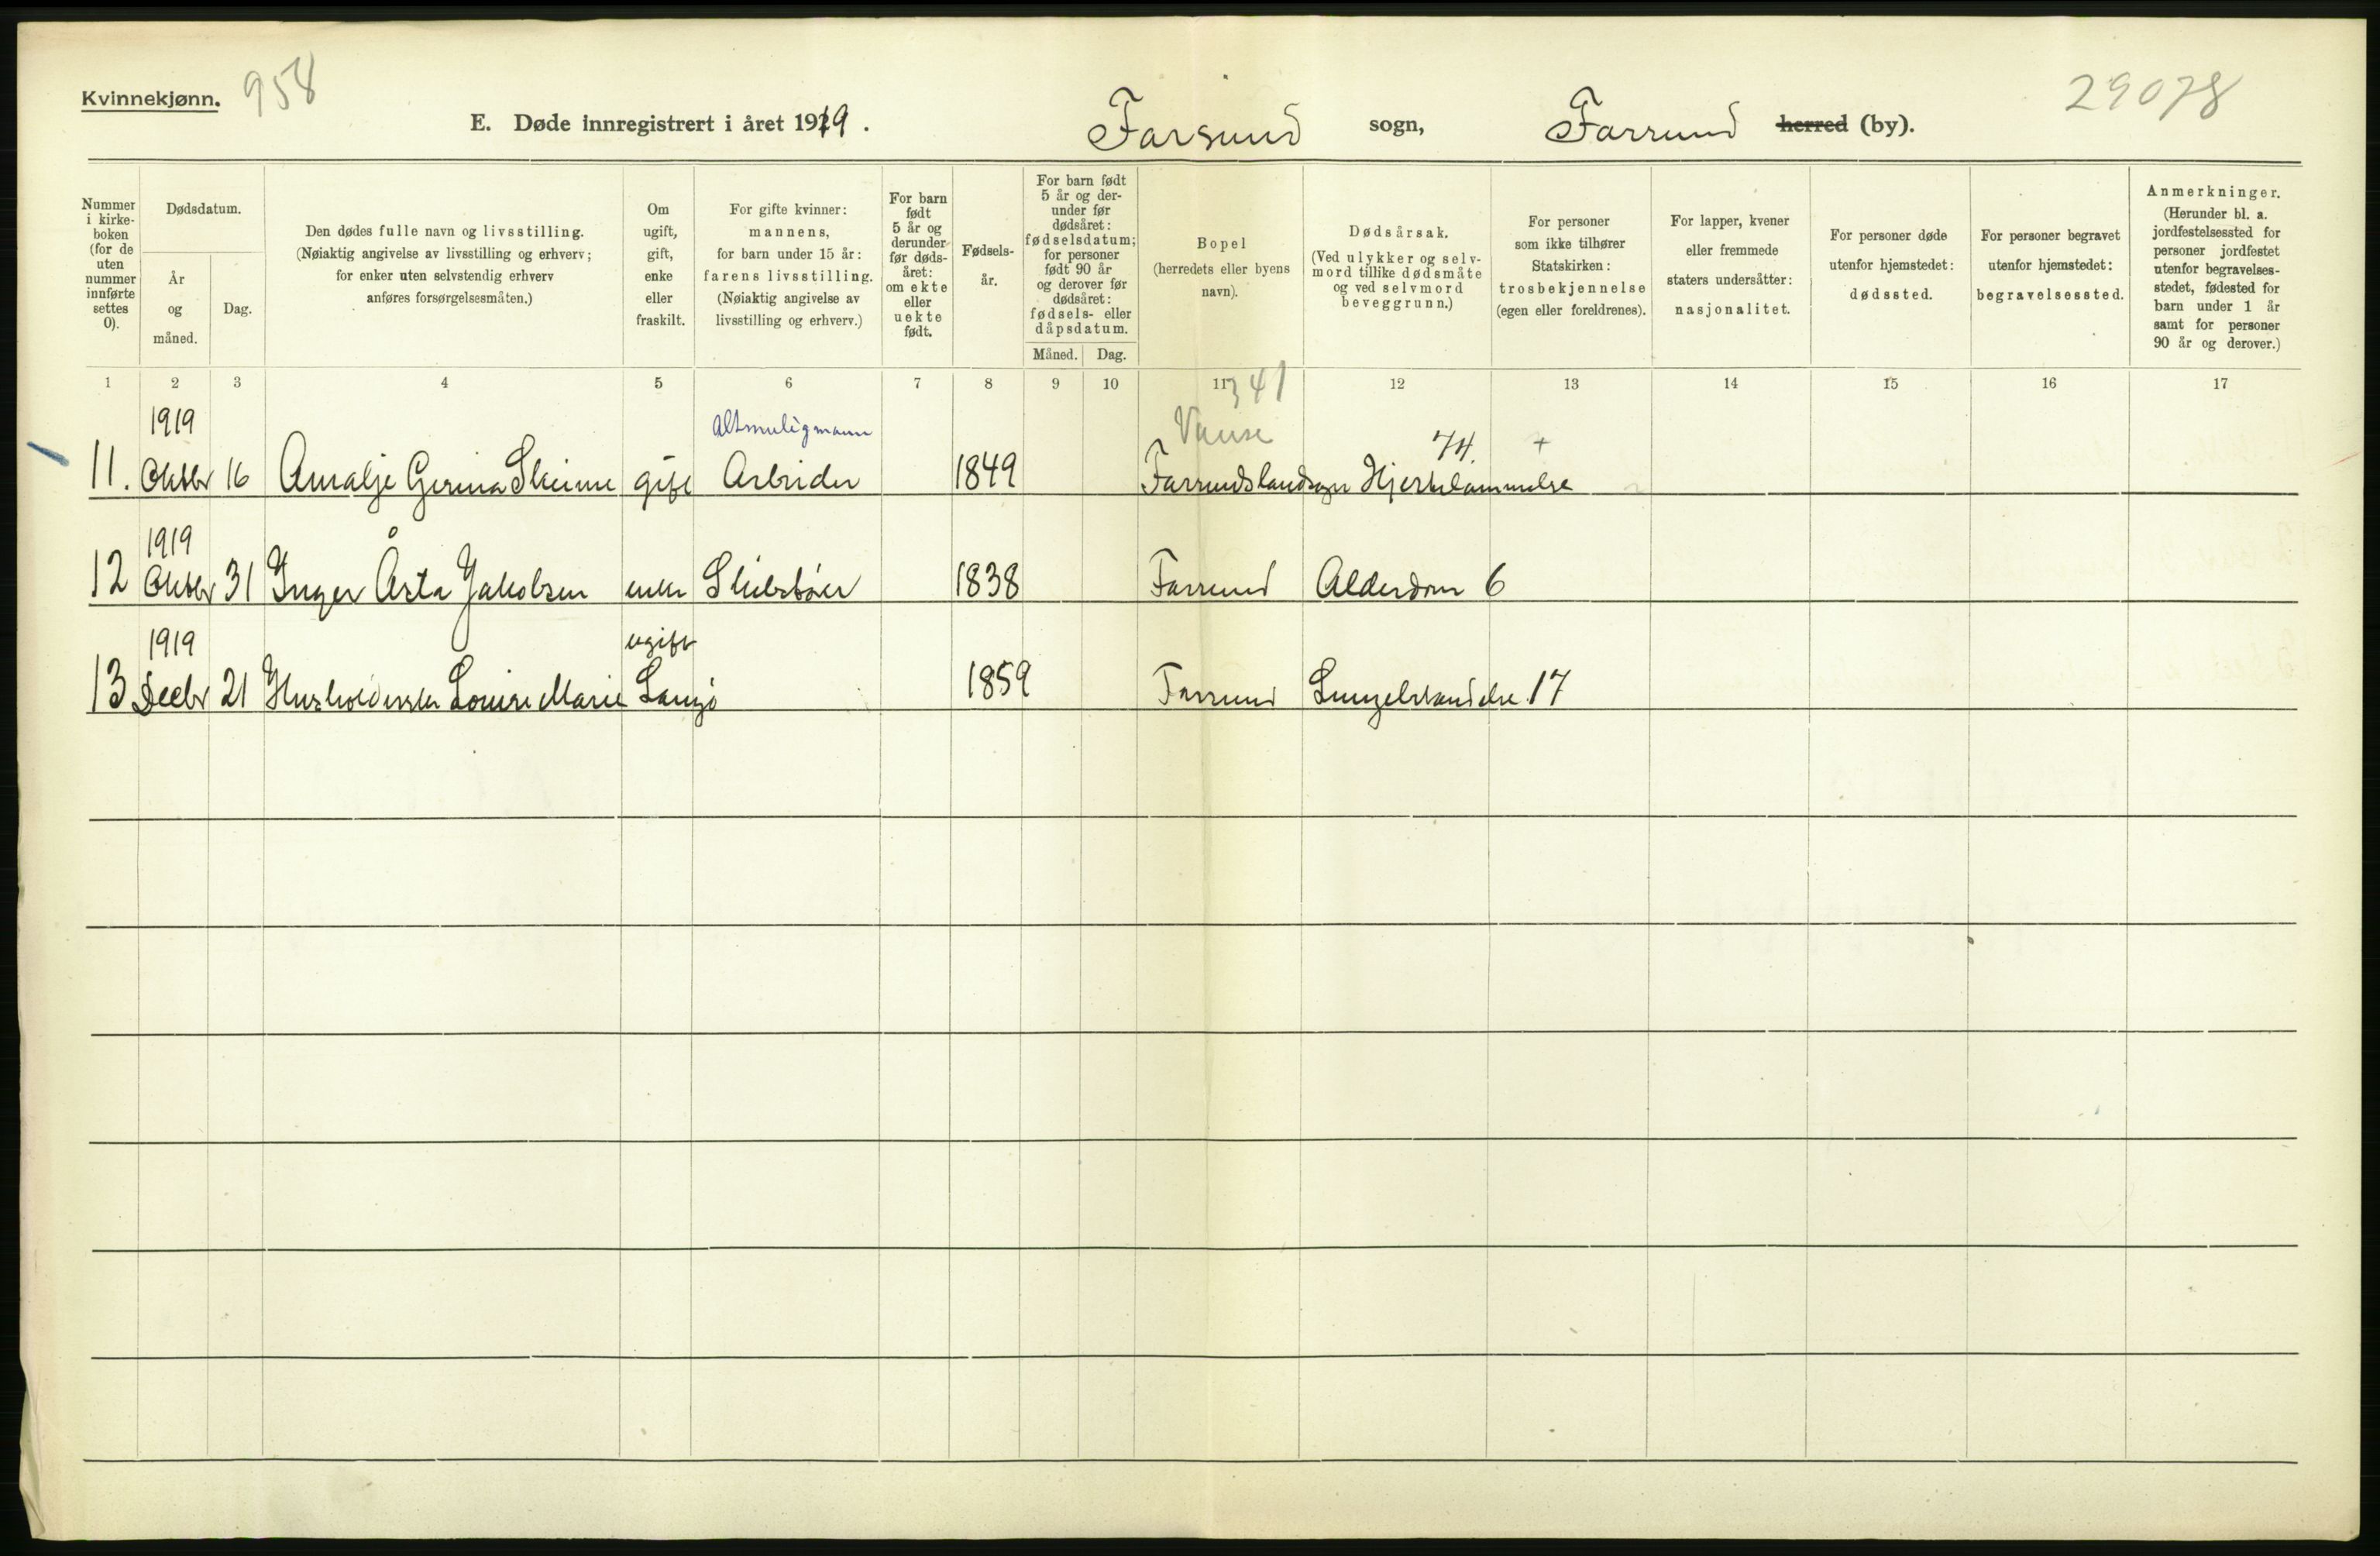 Kvinnekjønn. 958
29078
E. Døde innregistrert i året 1919. Farsund sogn, Farsund herred (by).
Nummer i kirke-boken (for de uten nummer innførte settes 0).
Dødsdatum.
År og måned.
Dag.
Den dødes fulle navn og livsstilling.
(Nøiaktig angivelse av livsstilling og erhverv;
for enker uten selvstendig erhverv
anføres forsørgelsesmåten.)
Om ugift, gift, enke eller fraskilt.
For gifte kvinner:
mannens,
for barn under 15 år:
farens livsstilling.
(Nøiaktig angivelse av
livsstilling og erhverv.)
For barn født 5 år og derunder før døds-året: om ekte eller uekte født.
Fødsels-år.
For barn født 5 år og der-under før dødsåret: fødselsdatum; for personer født 90 år og derover før dødsåret: fødsels- eller dåpsdatum.
Måned. Dag.
Bopel
(herredets eller byens
navn).
Dødsårsak.
(Ved ulykker og selv-
mord tillike dødsmåte
og ved selvmord
beveggrunn.)
For personer
som ikke tilhører
Statskirken:
trosbekjennelse
(egen eller foreldrenes).
For lapper, kvener
eller fremmede
staters undersåtter:
nasjonalitet.
For personer døde
utenfor hjemstedet:
dødssted.
For personer begravet
utenfor hjemstedet:
begravelsessted.
Anmerkninger.
(Herunder bl. a.
jordfestelsessted for
personer jordfestet
utenfor begravelses-
stedet, fødested for
barn under 1 år
samt for personer
90 år og derover.)
1 2 3 4 5 6 7 8 9 10 11 12 13 14 15 16 17
341
1919 Altmuligmann Vanse 74. +
11. Oktbr 16 Amalje Gerina gift Arbeider 1849 Farsunds landsogn Hjertelammelse
1919
12 Oktbr 31 Inger Åsta Jakobsen enke 1838 Farsund Alderdom 6
1919 ugift
13 Decbr 21 Husholderske Louise Marie 1859 Farsund Lungebetændelse 17